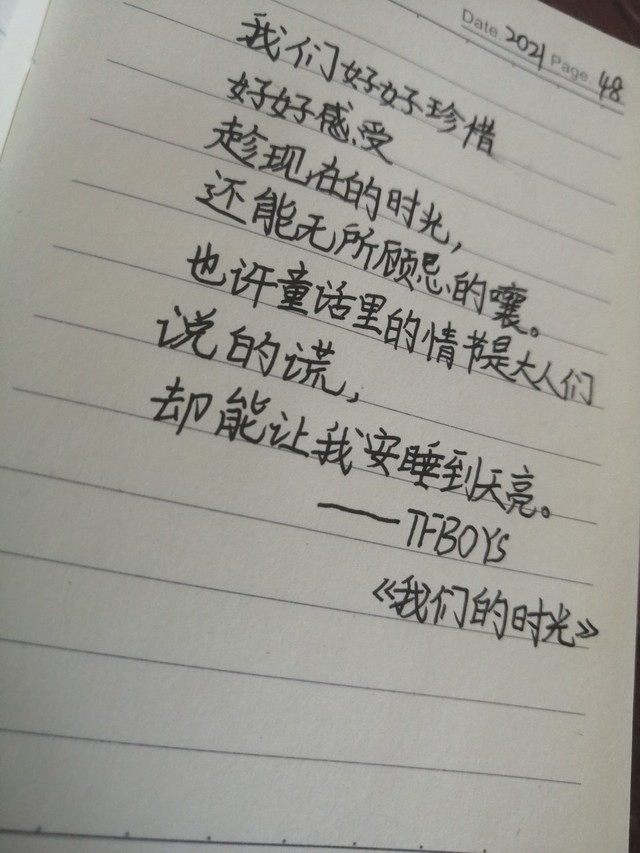 Date. 2021 Page. 48
我们好好珍惜
好好感受
趁现在的时光，
还能无所顾忌的嚷。
也许童话里的情节是大人们
说的谎，
却能让我安睡到天亮。
——TFBOYS
《我们的时光》